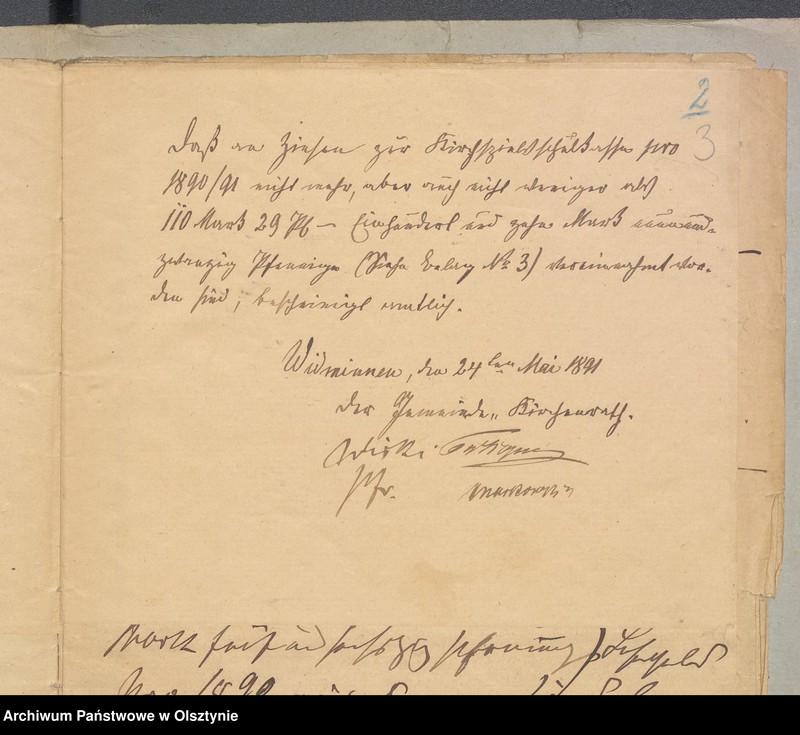 2
3
Daß an Zinsen zur Kirchspielsschulkasse pro
1890/91 nicht mehr, aber auch nicht weniger als
110 Mark 29 Pf – Einhundert und zehn Mark neunund-
zwanzig Pfennige (Siehe Belag No 3) vereinnahmt wor-
den sind, bescheinigt amtlich.
Widminnen, den 24ten Mai 1891
Der Gemeinde-Kirchenrath.
Wiski
Pfr.
Mark fünf und sechszig Pfennig) Schulgeld
1890
Archiwum Państwowe w Olsztynie